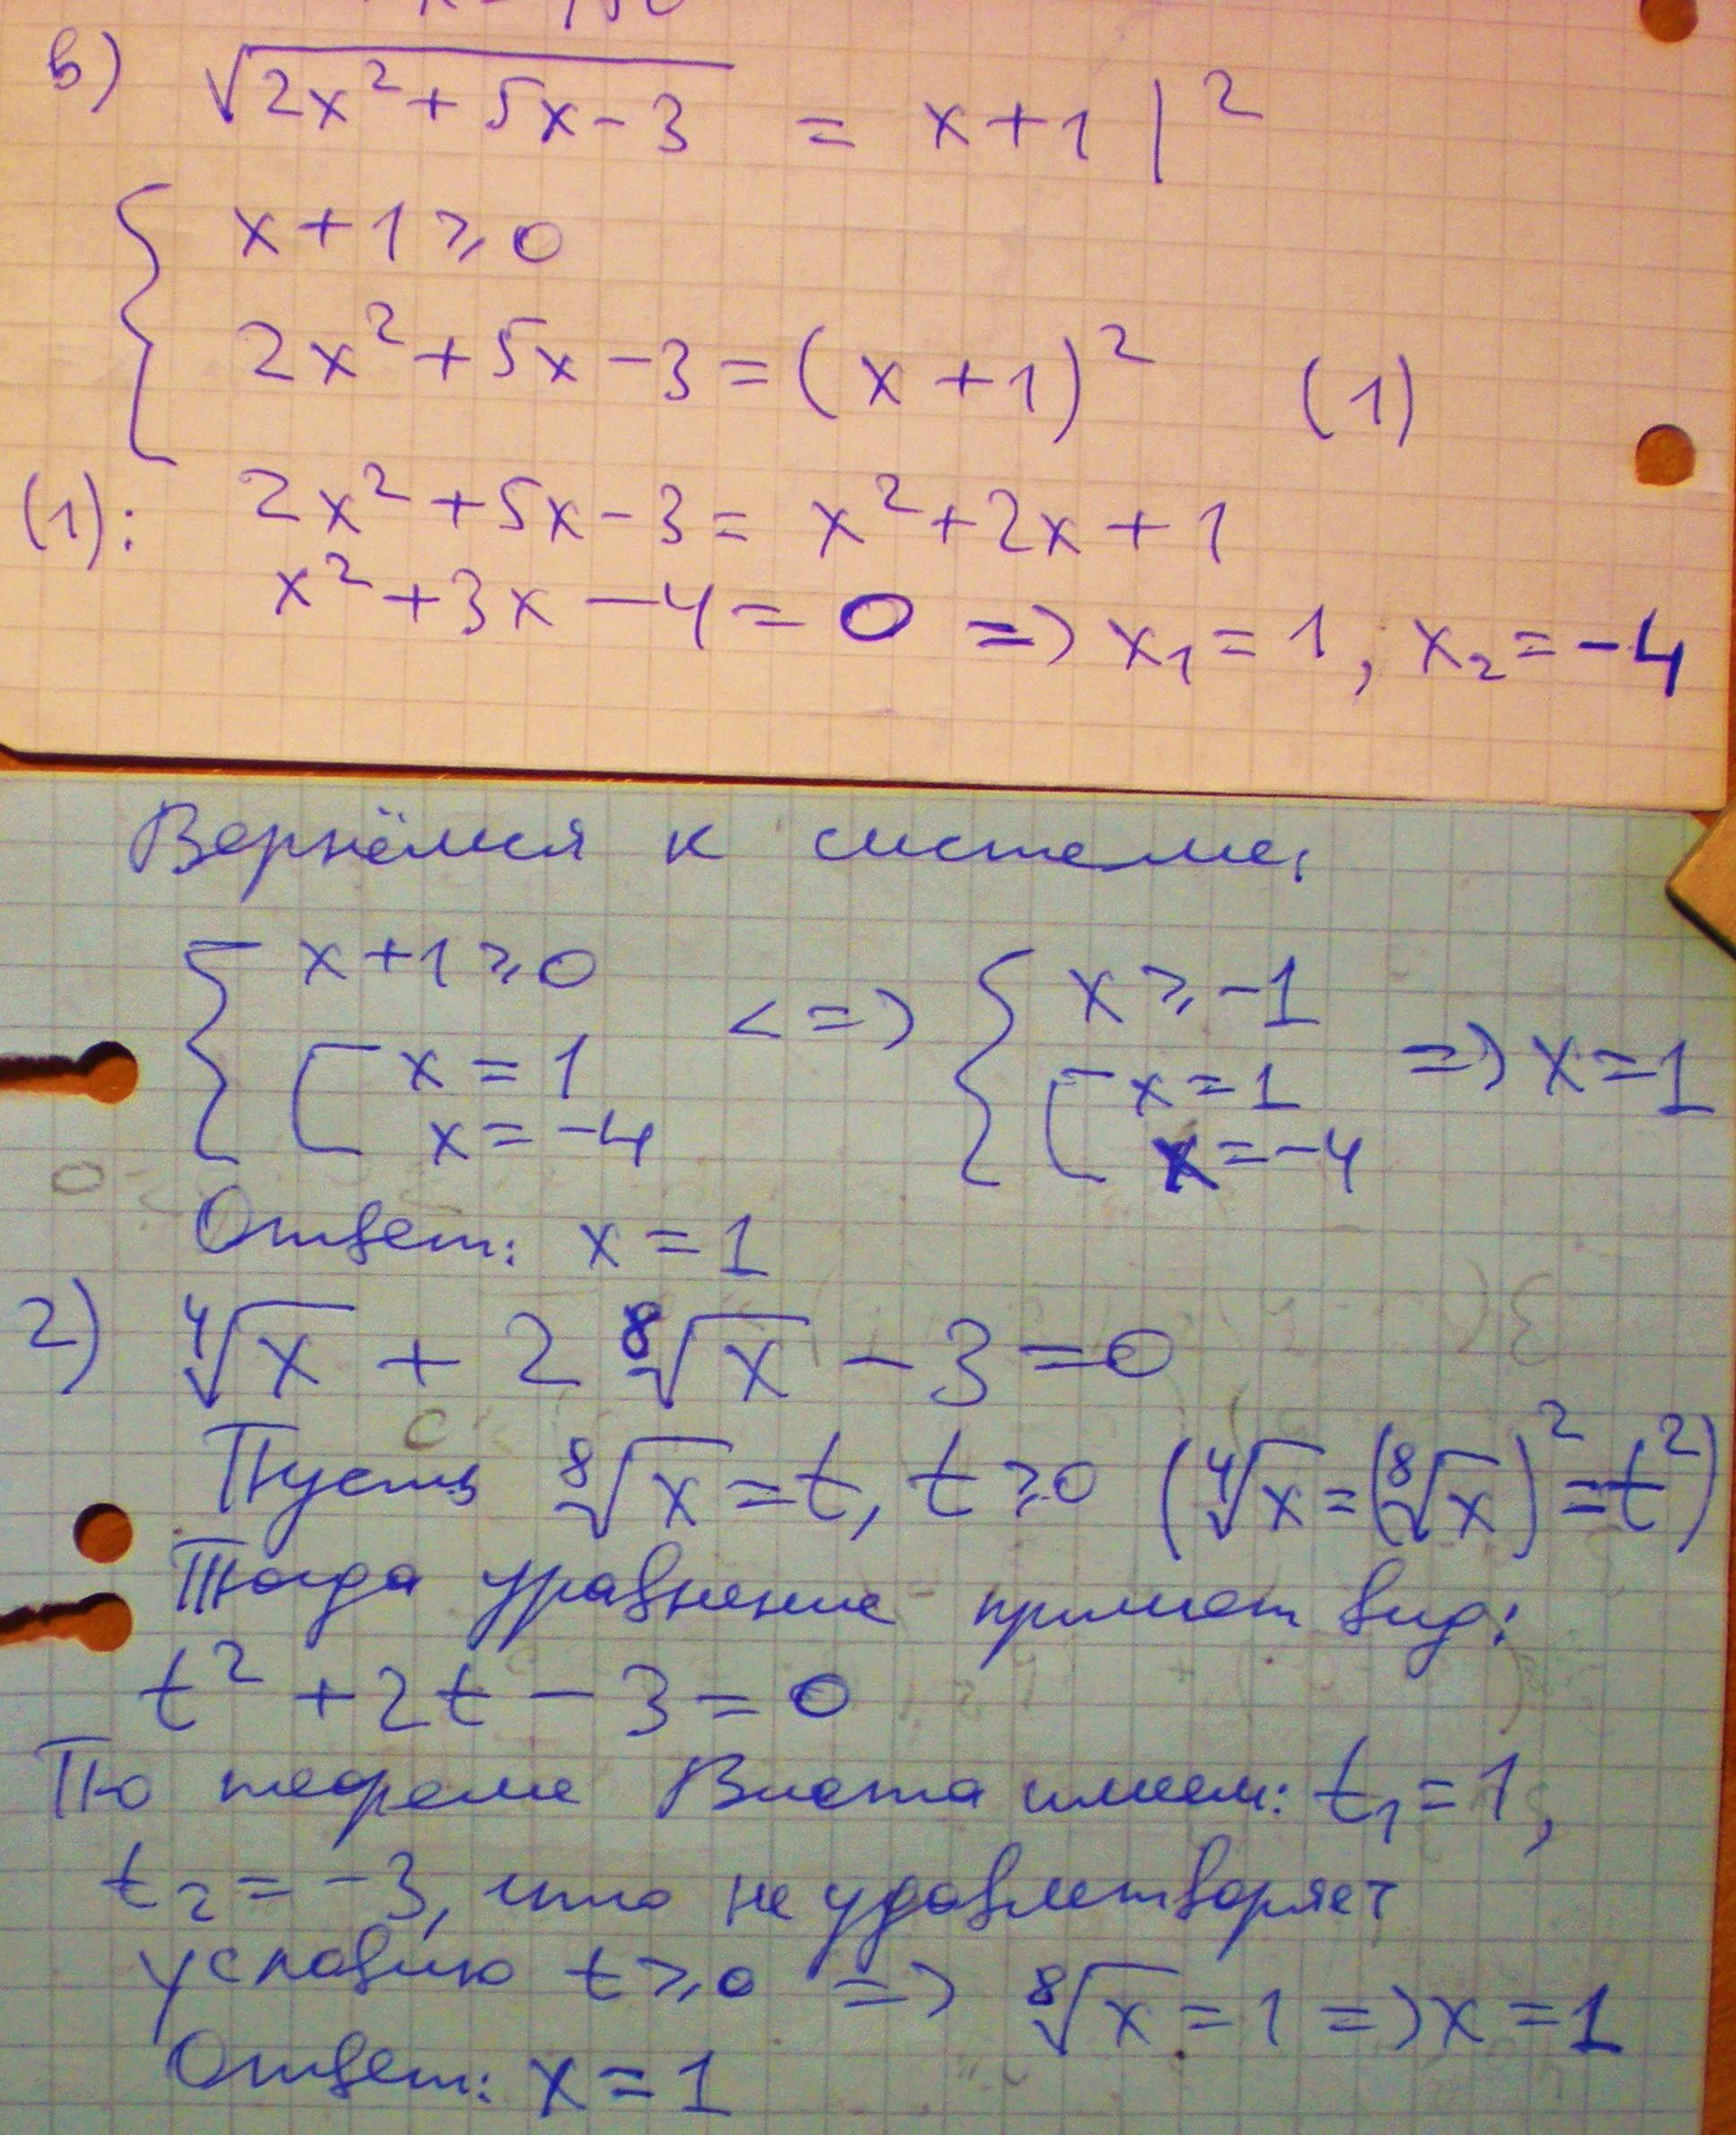 в) √(2x² + 5x - 3) = x + 1 |²
{ x + 1 ⩾ 0
2x² + 5x - 3 = (x + 1)² (1)
(1): 2x² + 5x - 3 = x² + 2x + 1
x² + 3x - 4 = 0 => x₁ = 1, x₂ = -4
Вернёмся к системе,
{ x + 1 ⩾ 0 [ x = 1 x = -4 <=> { x ⩾ -1 [ x = 1 x = -4 => x = 1
Ответ: x = 1
г) ⁴√x + 2 ⁸√x - 3 = 0
Пусть ⁸√x = t, t ⩾ 0 (⁴√x = (⁸√x)² = t²)
Тогда уравнение примет вид:
t² + 2t - 3 = 0
По теореме Виета имеем: t₁ = 1,
t₂ = -3, что не удовлетворяет
условию t ⩾ 0 => ⁸√x = 1 => x = 1
Ответ: x = 1